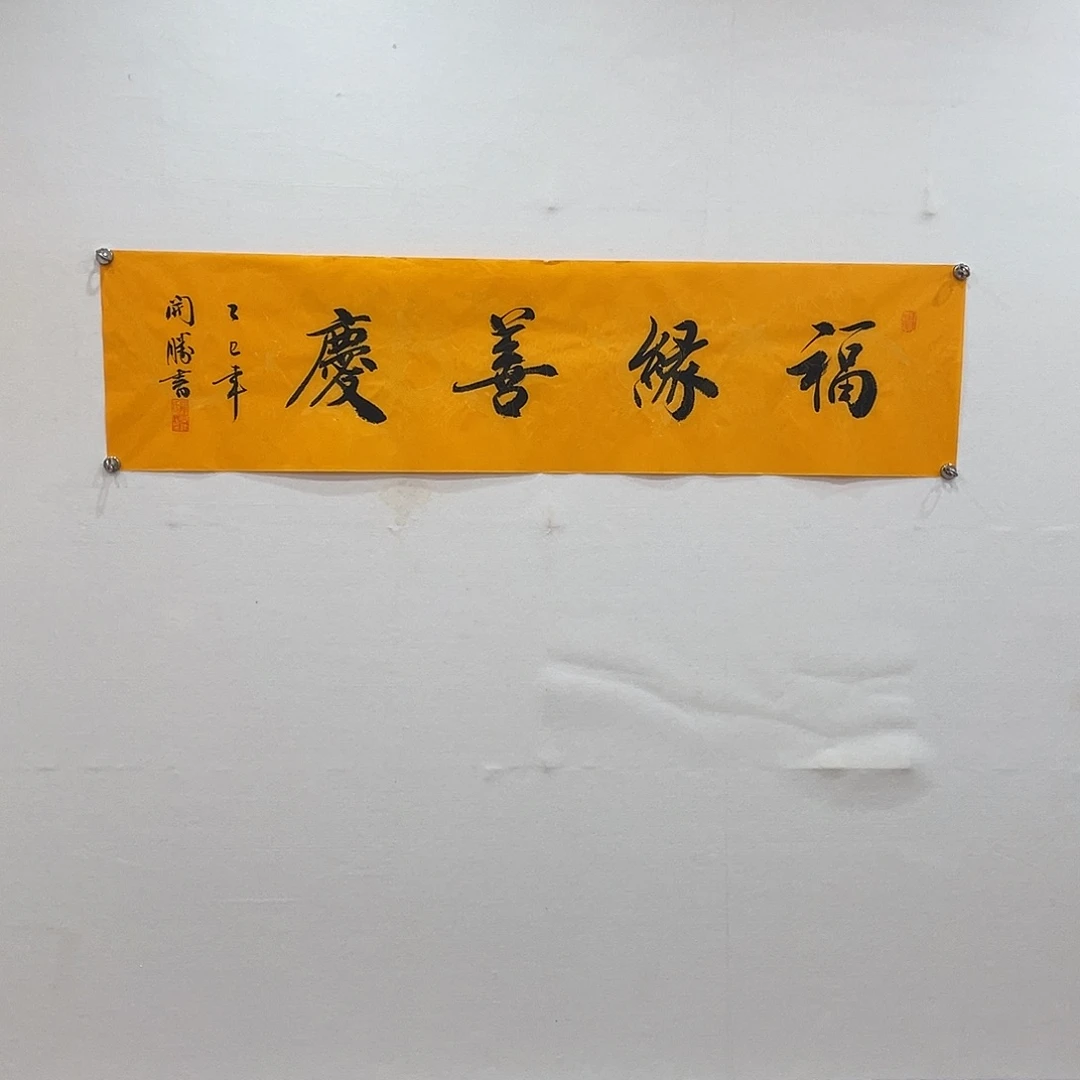 福緣善慶
乙巳年
開勝書